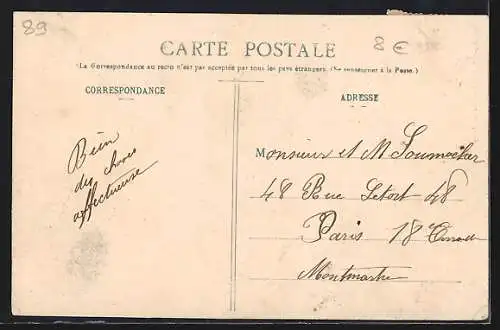 89
8 €
CARTE POSTALE
(La Correspondance au recto n'est pas acceptée par tous les pays étrangers. (Se renseigner à la Poste.)
CORRESPONDANCE
ADRESSE
Bien
des choses
affectueuse
Monsieur et M Soumacher
48 Rue Letort 48
Paris 18
Montmartre